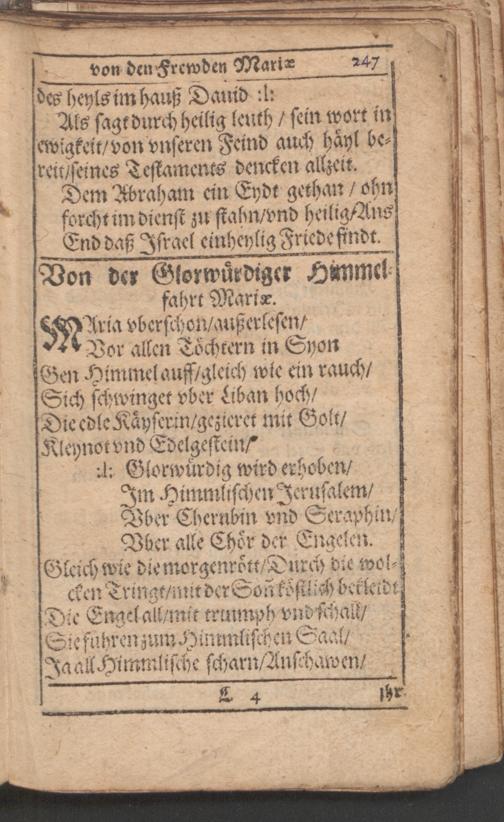 von den Frewden Mariæ 247
des heyls im hauß Dauid :|:
Als sagt durch heilig leuth / sein wort in
ewigkeit/von vnseren Feind auch häyl be-
reit/seines Testaments dencken allzeit.
Dem Abraham ein Eydt gethan / ohn
forcht im dienst zu stahn/vnd heilig/Ans
End daß Israel einheylig Friede findt.
Von der Glorwürdiger Himmel-
fahrt Mariæ.
MAria vberschon/außerlesen/
Vor allen Töchtern in Syon
Gen Himmel auff/gleich wie ein rauch/
Sich schwinget vber Liban hoch/
Die edle Käyserin/gezieret mit Golt/
Kleynot vnd Edelgestein/
:|: Glorwürdig wird erhoben/
Im Himmlischen Jerusalem/
Vber Cherubin vnd Seraphin/
Vber alle Chör der Engelen.
Gleich wie die morgenrött/Durch die wol-
cken Tringt/mit der Soñ köstlich bekleidt
Die Engel all/mit triumph vnd schall/
Sie fuhren zum Himmlischen Saal/
Ja all Himmlische scharn/Anschawen/
L 4 ihr